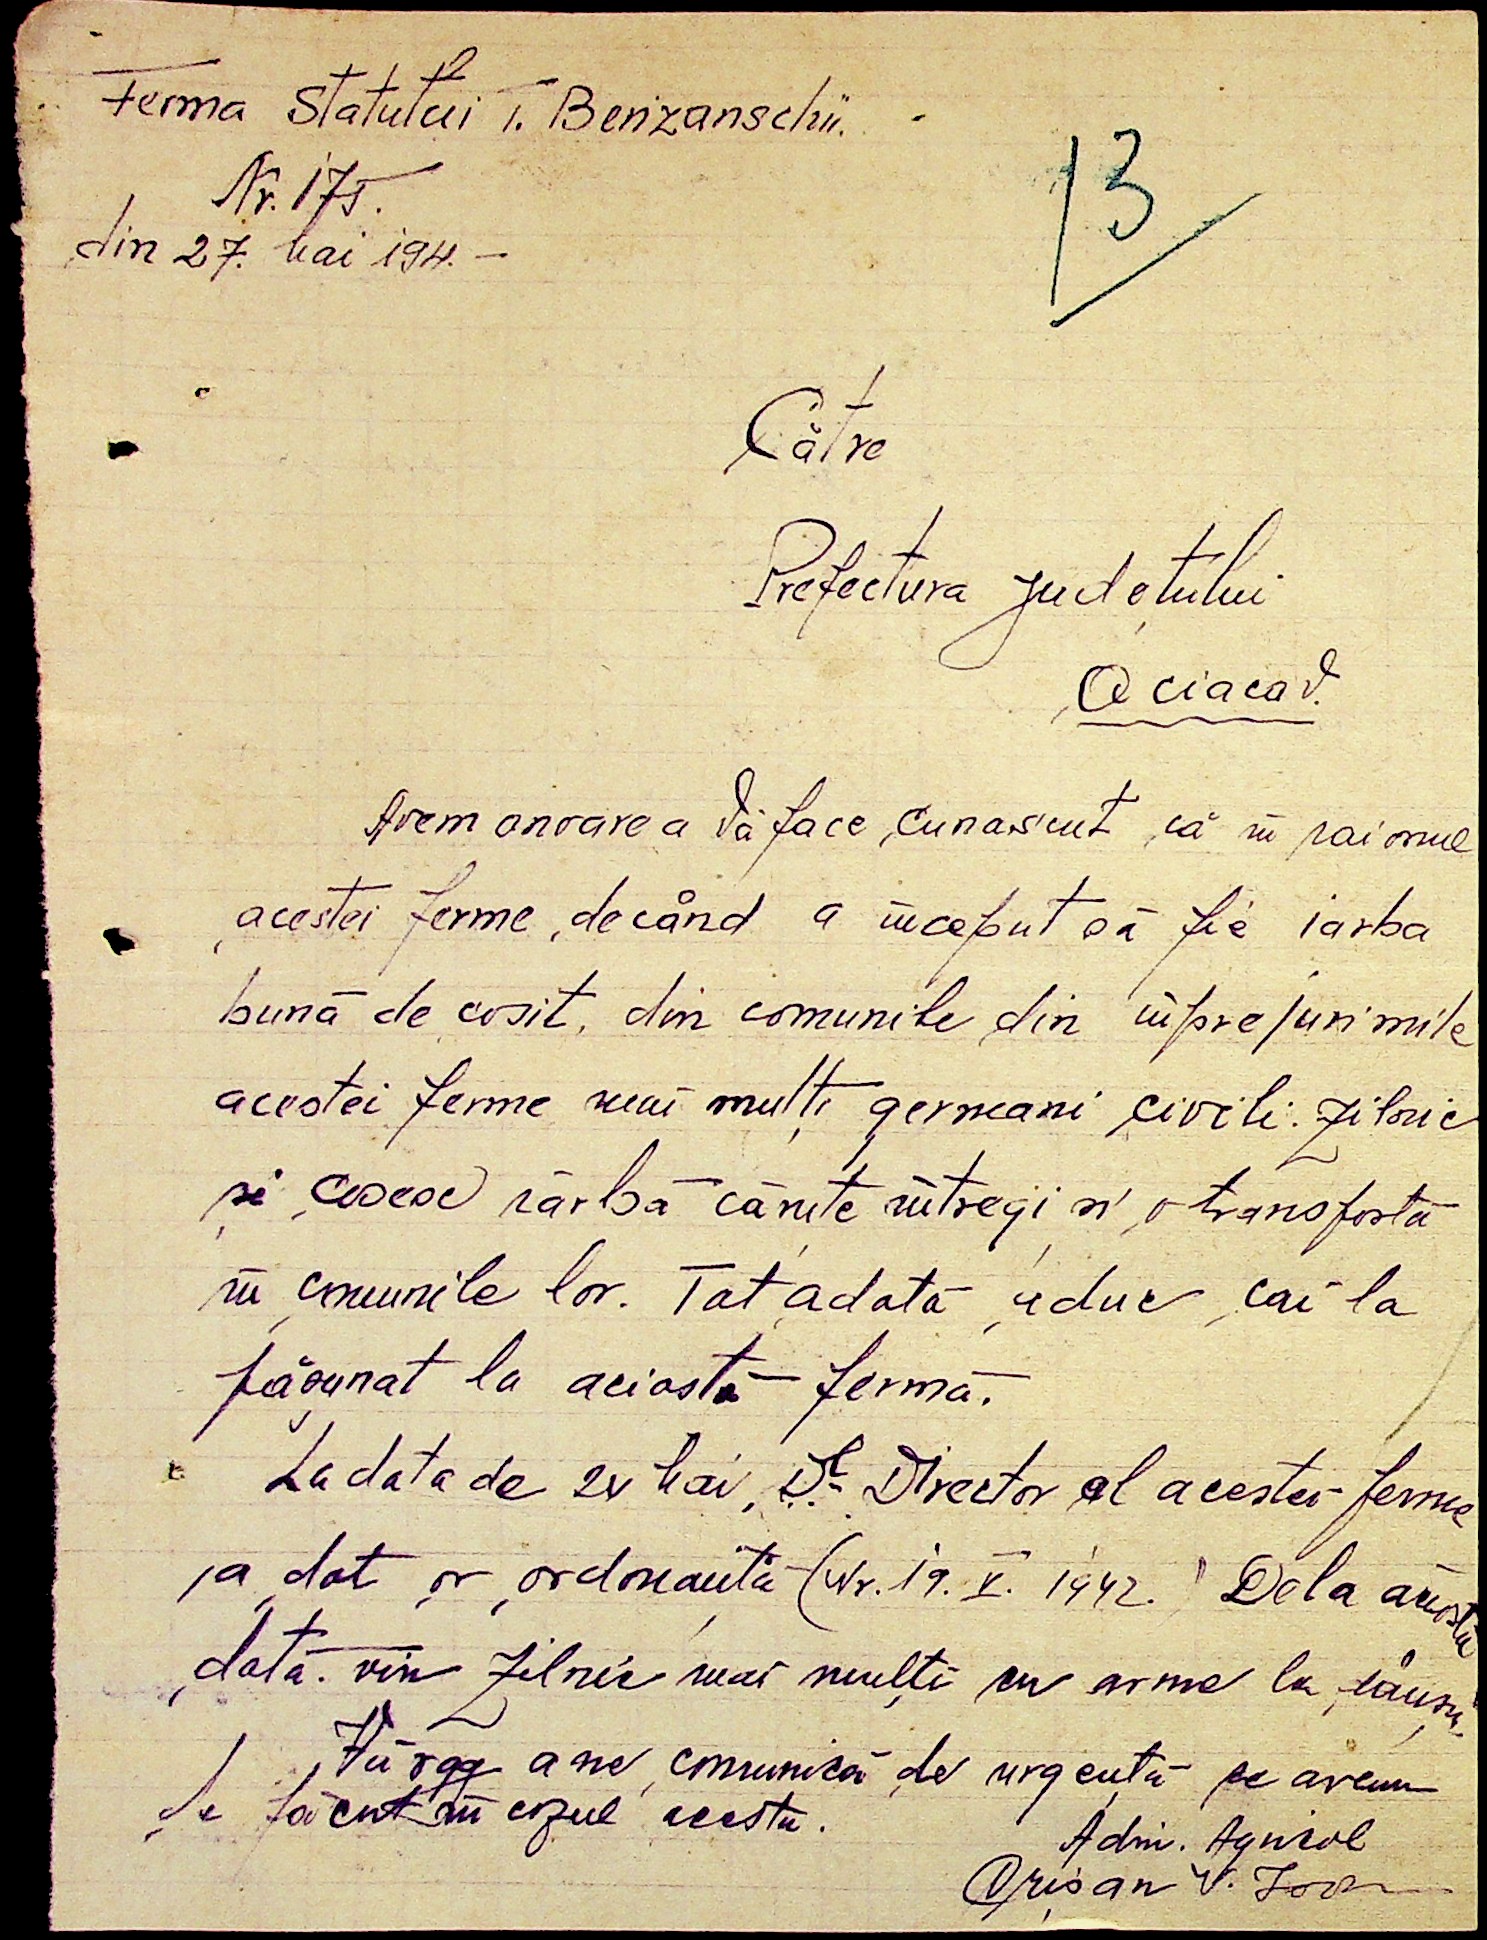 Ferma Statului T. Benzanschii.
Nr. 175.
din 27. Mai 194. -
13
Către
Prefectura județului
Oceacov.
Avem onoarea Vă face cunascut că în raionul
acestei ferme, decând a început să fie iarba
bună de cosit, din comunile din împrejurimile
acestei ferme mai mulți germani civili. zilnic
și cosesc iarbă cărute întregi și o transportă
în comunile lor. Tot adată aduc cai la
pășunat la aciastă fermă.
La data de 24 Mai, Dl. Director al acestei ferme
a dat or ordonantă (Nr. 19. V. 1942. Dela aciastă
dată. vin zilnic mai mulți cu arme la
Vă rog a ne comunică de urgență ce avem
de făcut în cazul acesta.
Adm. Agricol
Crișan V. Ioan